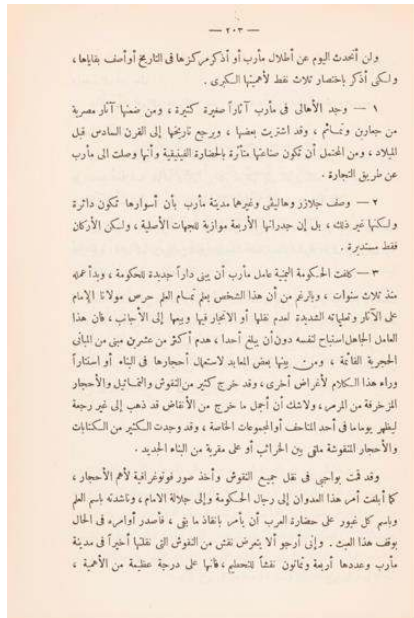 — ٢٠٣ —
ولن أتحدث اليوم عن أطلال مأرب أو أذكر مركزها فى التاريخ أو أصف بقاياها ،
ولكنى أذكر باختصار ثلاث نقط لأهميتها الكبرى .
١ — وجد الأهالى فى مأرب آثاراً صغيرة كثيرة ، ومن ضمنها آثار مصرية
من جعارين وتمائم ، وقد اشتريت بعضها ، ويرجع تاريخها إلى القرن السادس قبل
الميلاد ، ومن المحتمل أن تكون صناعتها متأثرة بالحضارة الفينيقية وأنها وصلت الى مأرب
عن طريق التجارة .
٢ — وصف جلازر وهاليفى وغيرهما مدينة مأرب بأن أسوارها تكون دائرة
ولكنها غير ذلك ، بل إن جدرانها الأربعة موازية للجهات الأصلية ، ولكن الأركان
فقط مستديرة .
٣ — كلفت الحكومة اليمنية عامل مأرب أن يبنى داراً جديدة للحكومة ، وبدأ عمله
منذ ثلاث سنوات ، وبالرغم من أن هذا الشخص يعلم تمام العلم حرص مولانا الإمام
على الآثار وتعليماته الشديدة لعدم نقلها أو الاتجار فيها وبيعها إلى الأجانب ، فان هذا
العامل الجاهل استباح لنفسه دون أن يبلغ أحدا ، هدم أكثر من عشرين مبنى من المبانى
الحجرية القائمة ، ومن بينها بعض المعابد لاستعمال أحجارها فى البناء أو استتاراً
وراء هذا الكلام لأغراض أخرى ، وقد خرج كثير من النقوش والتماثيل والأحجار
المزخرفة من المرمر ، ولاشك أن أجمل ما خرج من الأنقاض قد ذهب إلى غير رجعة
ليظهر يوما ما فى أحد المتاحف أو المجموعات الخاصة ، وقد وجدت الكثير من الكتابات
والأحجار المنقوشة ملقى بين الخرائب أو على مقربة من البناء الجديد .
وقد قمت بواجبى فى نقل جميع النقوش وأخذ صور فوتوغرافية لأهم الأحجار ،
كما أبلغت أمر هذا العدوان إلى رجال الحكومة وإلى جلالة الامام ، وناشدته باسم العلم
وباسم كل غيور على حضارة العرب أن يأمر بانقاذ ما بقى ، فأصدر أوامره فى الحال
بوقف هذا العبث . وإنى أرجو ألا يتعرض نقش من النقوش التى نقلتها أخيراً فى مدينة
مأرب وعددها أربعة وثمانون نقشاً للتحطيم ، فانها على درجة عظيمة من الأهمية ،